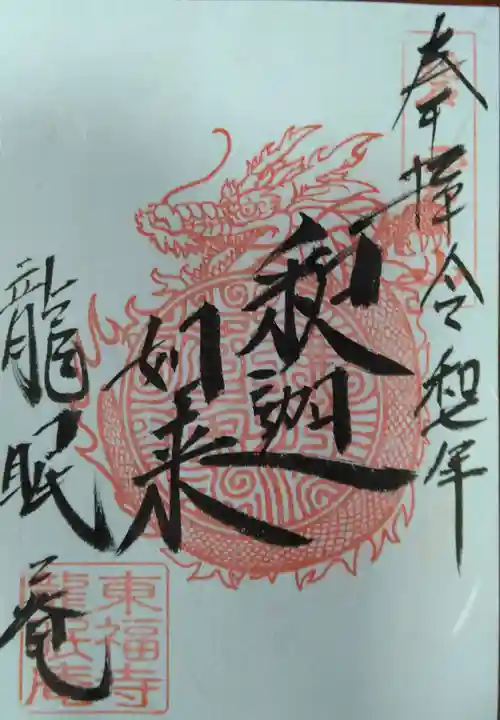 奉拝 令和七年
釈迦
如来
龍眠庵
東福寺
龍眠庵